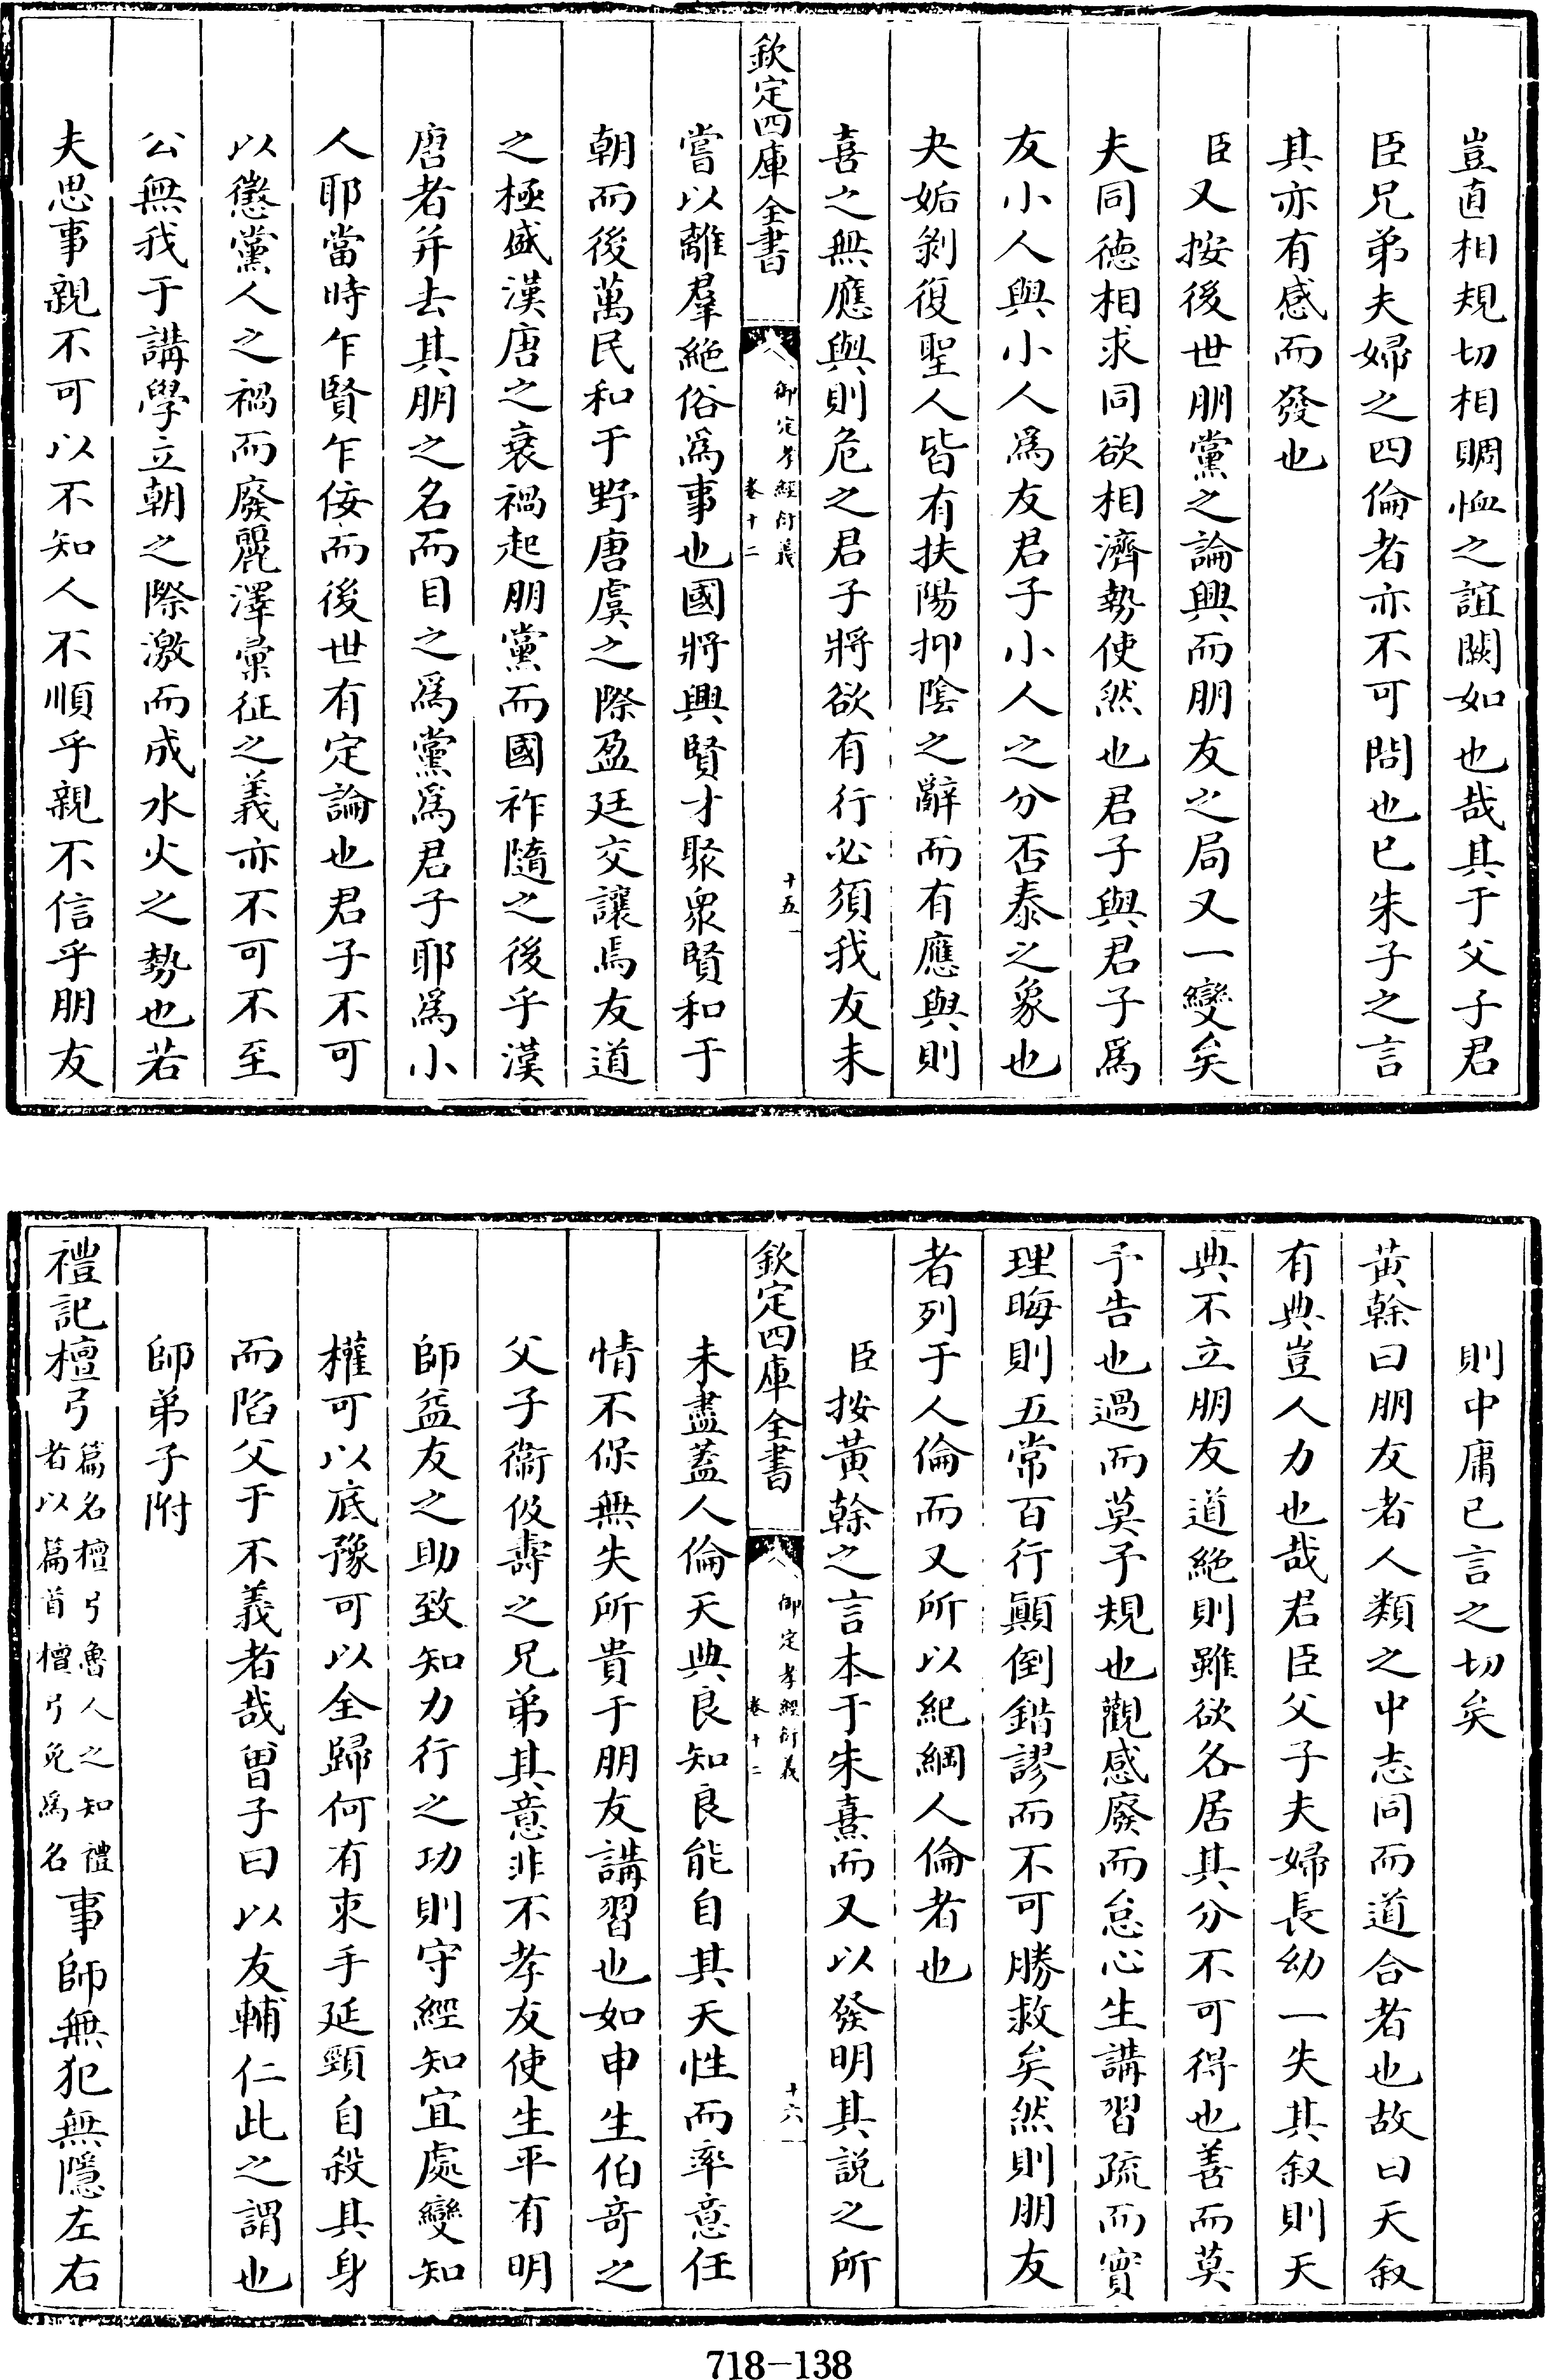 豈直相規切相賙恤之誼闕如也哉其于父子君
臣兄弟夫婦之四倫者亦不可問也已朱子之言
其亦有感而發也
臣又按後世朋黨之論興而朋友之局又一變矣
夫同德相求同欲相濟勢使然也君子與君子爲
友小人與小人爲友君子小人之分否泰之象也
夬姤剝復聖人皆有扶陽抑陰之辭而有應與則
喜之無應與則危之君子將欲有行必須我友未
欽定四庫全書
御定孝經衍義
卷十二
十五
嘗以離羣絶俗爲事也國將興賢才聚衆賢和于
朝而後萬民和于野唐虞之際盈廷交讓焉友道
之極盛漢唐之衰禍起朋黨而國祚隨之後乎漢
唐者并去其朋之名而目之爲黨爲君子耶爲小
人耶當時乍賢乍佞而後世有定論也君子不可
以懲黨人之禍而廢麗澤彙征之義亦不可不至
公無我于講學立朝之際激而成水火之勢也若
夫思事親不可以不知人不順乎親不信乎朋友
則中庸已言之切矣
黄榦曰朋友者人類之中志同而道合者也故曰天叙
有典豈人力也哉君臣父子夫婦長幼一失其叙則天
典不立朋友道絶則雖欲各居其分不可得也善而莫
予告也過而莫予規也觀感廢而怠心生講習疏而實
理晦則五常百行顚倒錯謬而不可勝救矣然則朋友
者列于人倫而又所以紀綱人倫者也
臣按黃榦之言本于朱熹而又以發明其説之所
欽定四庫全書
御定孝經衍義
卷十二
十六
未盡蓋人倫天典良知良能自其天性而率意任
情不保無失所貴于朋友講習也如申生伯奇之
父子衞伋壽之兄弟其意非不孝友使生平有明
師益友之助致知力行之功則守經知宜處變知
權可以底豫可以全歸何有束手延頸自殺其身
而陷父于不義者哉曾子曰以友輔仁此之謂也
師弟子附
禮記檀弓篇名檀弓魯人之知禮者以篇首檀弓免爲名事師無犯無隱左右
718-138